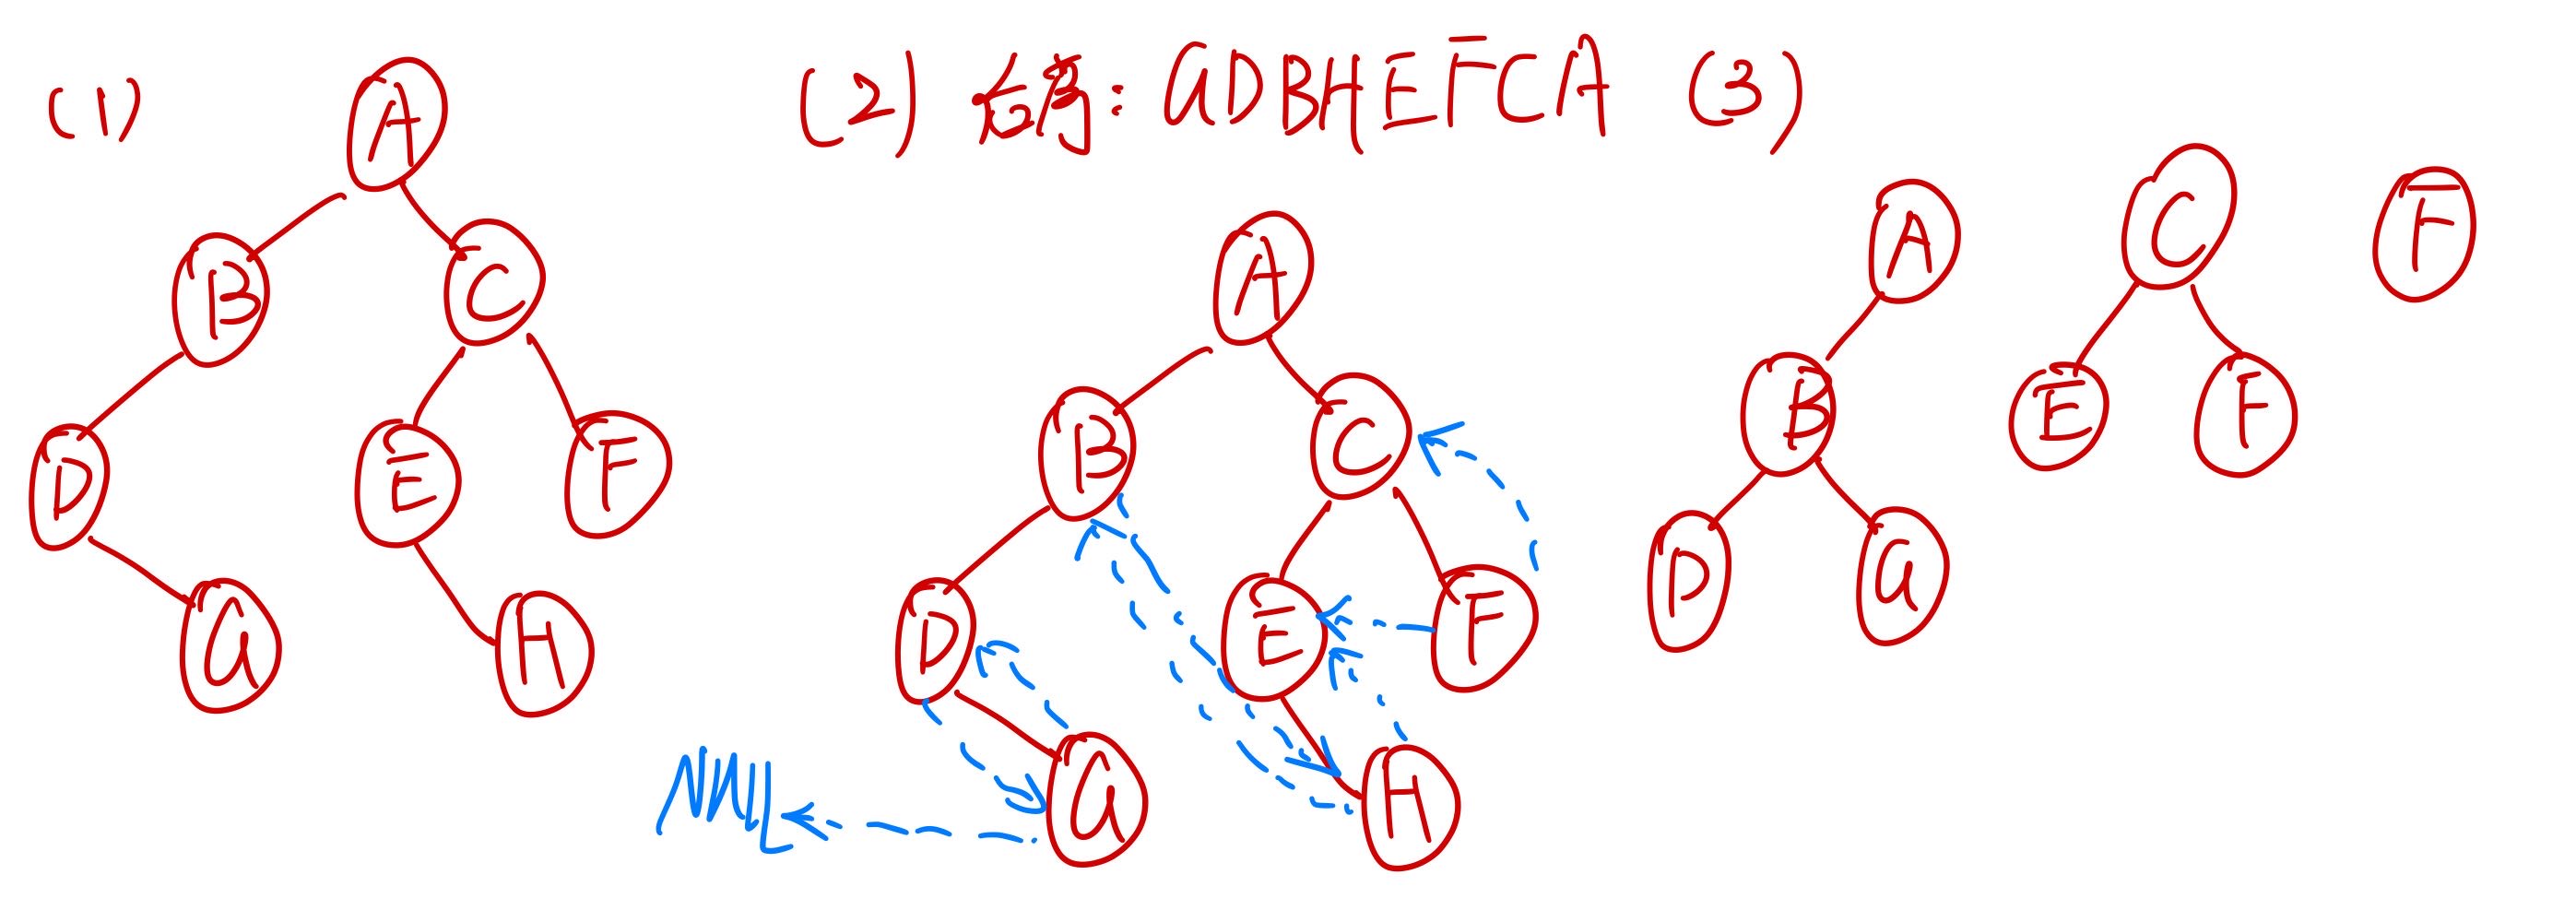 (1)
A
B C
D E F
G H
(2) 后序: GDBHEFCA
A
B C
D E F
G H
NULL
(3)
A C F
B E F
D G